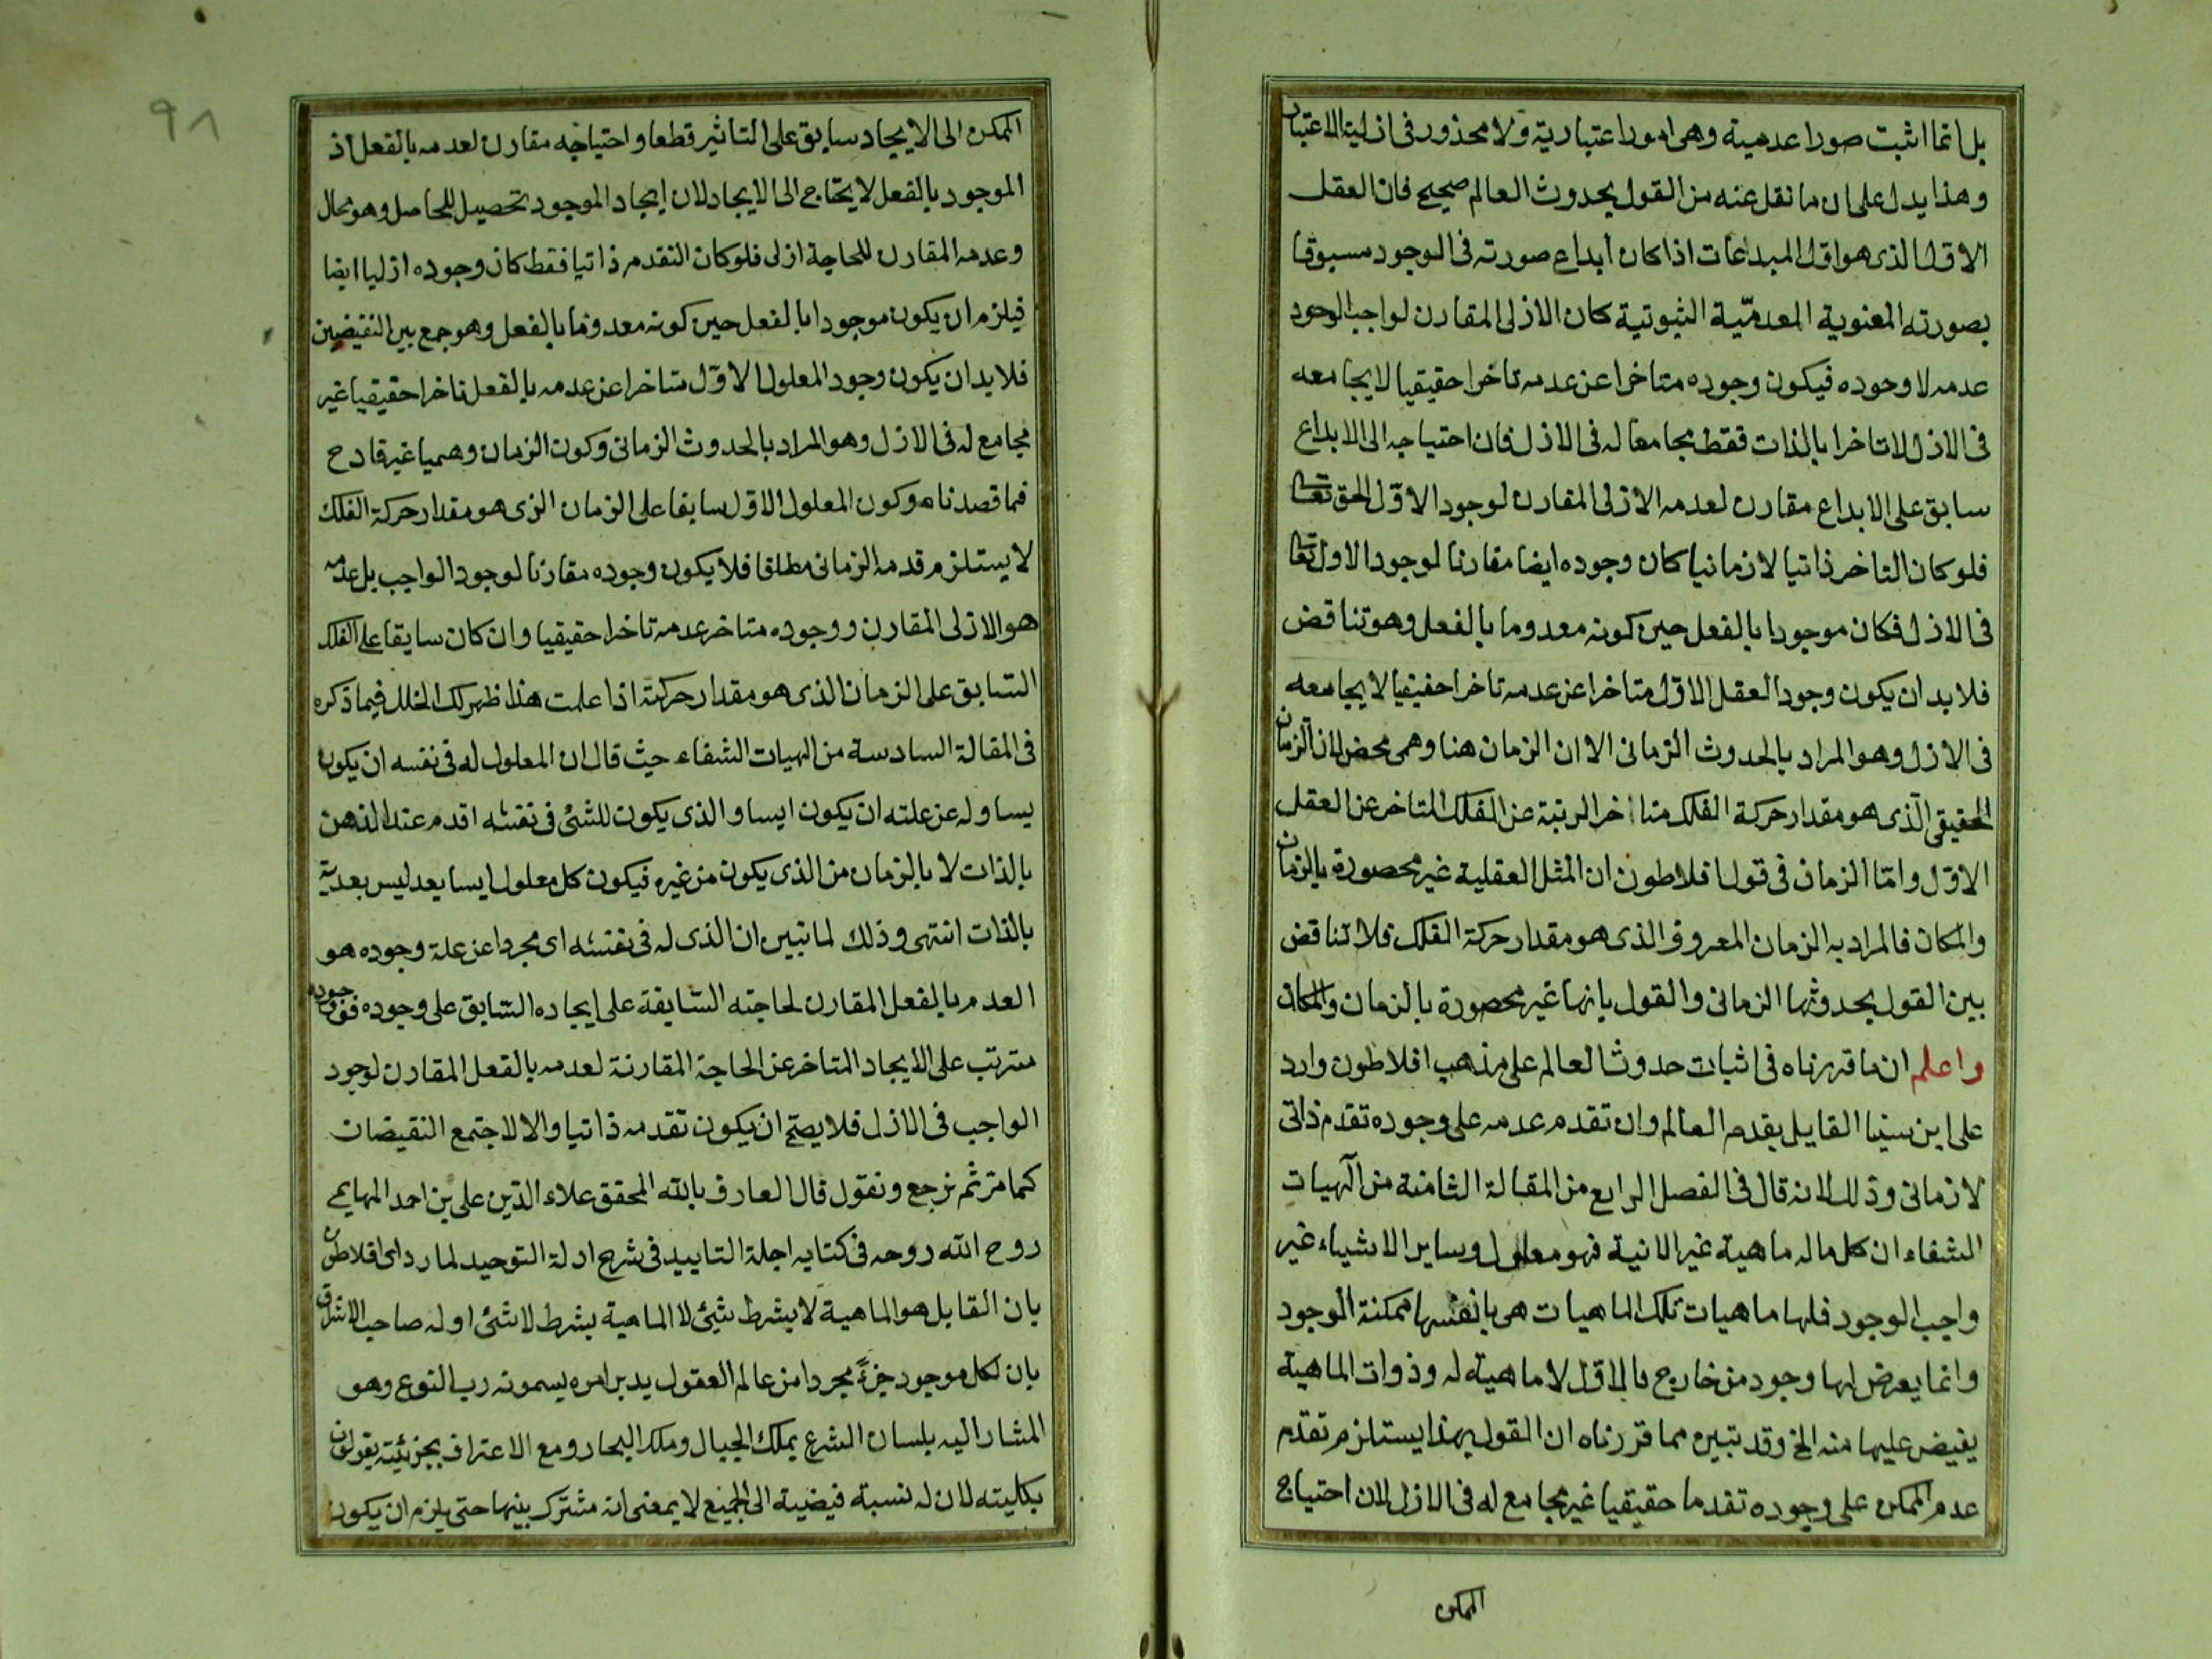 بل انما اثبت صورا عدمية وهى امور اعتبارية ولا محذور فى ازلية الاعتبار
وهذا يدل على ان ما نقل عنه من القول بحدوث العالم صحيح فان العقل
الاول الذى هو اول المبدعات اذا كان ابداع صورته فى الوجود مسبوقا
بصورته المعنوية المعدميّة الثبوتية كان الازلى المقارن لواجب الوجود
عدمه لا وجوده فيكون وجوده متاخرا عن عدمه تاخرا حقيقيا لا يجامعه
فى الازل لا تاخرا بالذات فقط مجامعا له فى الازل فان احتياجه الى الابداع
سابق على الابداع مقارن لعدمه الازلى المقارن لوجود الاوّل الحق تعالى
فلو كان التاخر ذاتيا لا زمانيا كان وجوده ايضا مقارنا لوجود الاول تعالى
فى الازل فكان موجودا بالفعل حين كونه معدوما بالفعل وهو تناقض
فلا بد ان يكون وجود العقل الاول متاخرا عن عدمه تاخرا حقيقيا لا يجامعه
فى الازل وهو المراد بالحدوث الزمانى الا ان الزمان هنا وهمى محض لان الزمان
الحقيقى الّذى هو مقدار حركة الفلك متاخر الرتبة عن الفلك المتاخر عن العقل
الاوّل وامّا الزمان فى قول افلاطون ان المثل العقلية غير محصورة بالزمان
والمكان فالمراد به الزمان المعروف الذى هو مقدار حركة الفلك فلا تناقض
بين القول بحدوثها الزمانى والقول بانها غير محصورة بالزمان والمكان
واعلم ان ما قررناه فى اثبات حدوث العالم على مذهب افلاطون وارد
على ابن سينا القايل بقدم العالم وان تقدم عدمه على وجوده تقدم ذاتى
لا زمانى وذلك لانه قال فى الفصل الرابع من المقالة الثامنة من آلهيات
الشفاء ان كل ما له ماهية غير الانية فهو معلول وساير الاشياء غير
واجب الوجود فلها ماهيات تلك الماهيات هى بانفسها ممكنة الوجود
وانما يعرض لها وجود من خارج فالاول لا ماهية له وذوات الماهية
يفيض عليها منه الخ وقد تبين مما قررناه ان القول بهذا يستلزم تقدم
عدم الممكن على وجوده تقدما حقيقيا غير مجامع له فى الازل لان احتياج
الممكن
٩٨
الممكن الى الايجاد سابق على التاثير قطعا واحتياجه مقارن لعدمه بالفعل اذ
الموجود بالفعل لا يحتاج الى الايجاد لان ايجاد الموجود تحصيل للحاصل وهو محال
وعدمه المقارن للحاجة ازلى فلو كان التقدم ذاتيا فقط كان وجوده ازليا ايضا
فيلزم ان يكون موجودا بالفعل حين كونه معدوما بالفعل وهو جمع بين النقيضين
فلا بد ان يكون وجود المعلول الاوّل متاخرا عن عدمه بالفعل تاخرا حقيقيا غير
مجامع له فى الازل وهو المراد بالحدوث الزمانى وكون الزمان وهميا غير قادح
فما قصدناه وكون المعلول الاول سابقا على الزمان الذى هو مقدار حركة الفلك
لا يستلزم قدمه الزمانى مطلقا فلا يكون وجوده مقارنا لوجود الواجب بل عدمه
هو الازلى المقارن ووجوده متاخر عدمه تاخرا حقيقيا وان كان سابقا على الفلك
السّابق على الزمان الذى هو مقدار حركته اذا علمت هذا ظهر لك الخلل فيما ذكره
فى المقالة السادسة من الهيات الشفاء حيث قال ان المعلول له فى نفسه ان يكون
يسا وله عن علته ان يكون ايسا والذى يكون للشئ فى نفسه اقدم عند الذهن
بالذات لا بالزمان من الذى يكون من غيره فيكون كل معلول ايسا بعد ليس بعدية
بالذات انتهى وذلك لما تبين ان الذى له فى نفسه اى مجردا عن علة وجوده هو
العدم بالفعل المقارن لحاجته السّابقة على ايجاده السّابق على وجوده فوجوده
مترتب على الايجاد المتاخر عن الحاجة المقارنة لعدمه بالفعل المقارن لوجود
الواجب فى الازل فلا يصح ان يكون تقدمه ذاتيا والا لاجتمع النقيضان
كما مرّ ثم نرجع ونقول قال العارف بالله المحقق علاء الدّين على بن احمد المهايمى
روح الله روحه فى كتابه اجلة التاييد فى شرح ادلة التوحيد لما ردا اى افلاطون
بان القابل هو الماهية لا بشرط شيئ لا الماهية بشرط لا شئ اوله صاحب الاشراق
بان لكل موجود جزءً مجردا من عالم العقول يدبر امره يسمونه رب النوع وهو
المشار اليه بلسان الشرع بملك الجبال وملك البحار ومع الاعتراف بجزئيّته يقولون
بكليته لان له نسبة فيضية الى الجميع لا بمعنى انه مشترك بينها حتى يلزم ان يكون